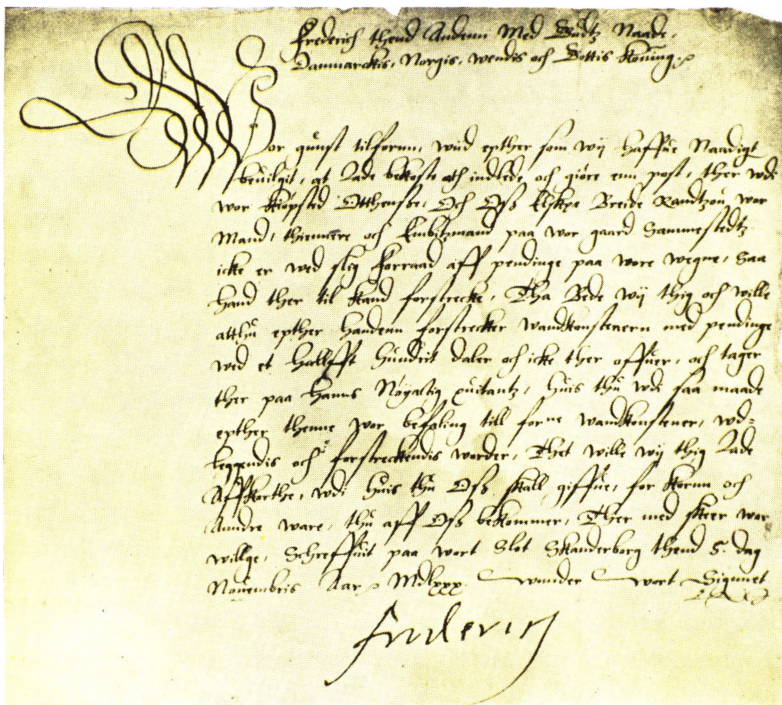 Frederich thend Andenn Med Gudtz Naade,
Danmarckis, Norgis, Wendis och Gottis Koning
Vor gunst tilforun, wiid epther som wij haffue Naadigt
beuilgit, at Lade bekoste och indlede och giøre enn post, ther wdi
wor kiøpsted Otthense, Och Oss Elskpe Breide Randtzou, wor
Mand, thiennere och Embitzmand paa wor gaard Hammestedtz
icke er wed slig forraad aff pendinge paa wore wegne, saa
hand ther til kand forstrecke, Tha Bede wij thig och wille
attthu epther handenn forstrecker wandkonstenern med pendinge
wed et hallfft hundrit daler och icke ther offuer, och tager
ther paa hanns Nøyactig quitantz, huis thu wdi saa maade
epther thenne wor befaling till forne wandkonstener, wd=
leggendis och forstreckendis worder, Thet wille wij thig Lade
Affkorthe, wdi huis thu Oss skall giffue, for korun och
Anndre ware, thu aff Oss bekommer, Ther med skeer wor
willge, Schreffuit paa wort Slot Skanderborg thend 5 dag
Nouembris Aar MDlxxx. Wnnder Wort Signnet
Frederich